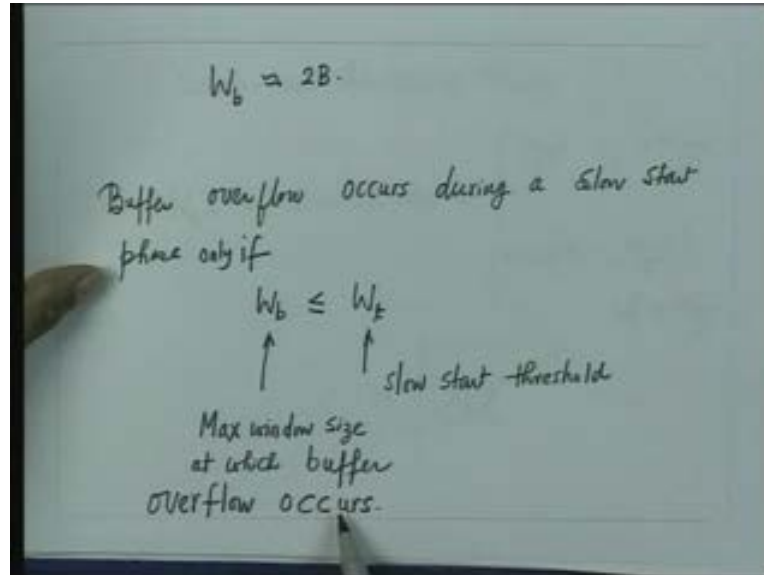 W_b ≈ 2B.
Buffer overflow occurs during a slow start
phase only if
W_b ≤ W_t
slow start threshold
Max window size
at which buffer
overflow occurs.